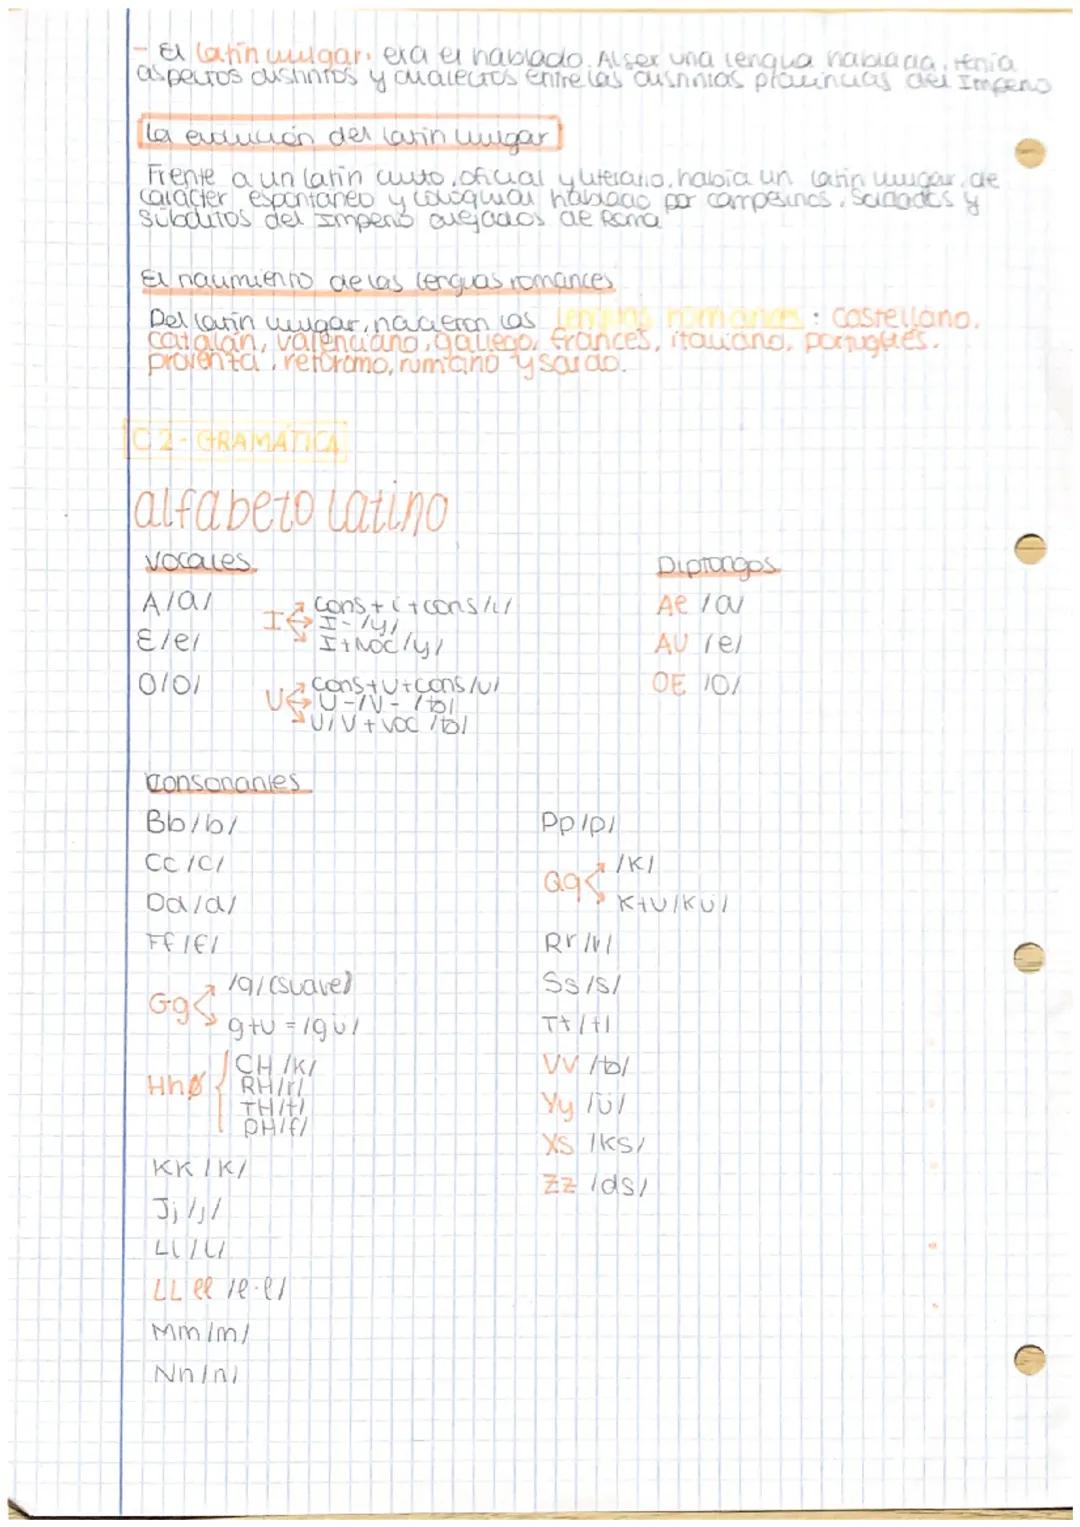 - El latín vulgar: era el hablado. Al ser una lengua hablada, tenía
aspectos distintos y dialectos entre las distintas provincias del Imperio
La evolución del latín vulgar
Frente a un latín culto, oficial y literario, había un latín vulgar, de
carácter espontáneo y coloquial hablado por campesinos, soldados y
súbditos del Imperio alejados de Roma
El nacimiento de las lenguas romances
Del latín vulgar, nacieron las lenguas romances: castellano,
catalán, valenciano, gallego, francés, italiano, portugués,
provenzal, retoromo, rumano y sardo.
C2- GRAMÁTICA
alfabeto latino
vocales
A/a/
E/e/
O/o/
I
cons+i+cons/i/
I-/y/
I+voc/y/
U
cons+u+cons/u/
U-/V- /b/
U/V+voc /b/
Diptongos
AE /a/
AU /e/
OE /o/
Consonantes
Bb/b/
Cc/c/
Dd/d/
Ff/f/
Gg
/g/(suave)
g+u=/gü/
Hh Ø
CH /k/
RH/r/
TH/t/
PH/f/
KK /K/
Jj/j/
Ll/l/
LL ll /l·l/
Mm/m/
Nn/n/
Pp/p/
Qq
/K/
K+U/Kü/
Rr/r/
Ss/s/
Tt/t/
VV /b/
Yy /ü/
XS /KS/
Zz /ds/